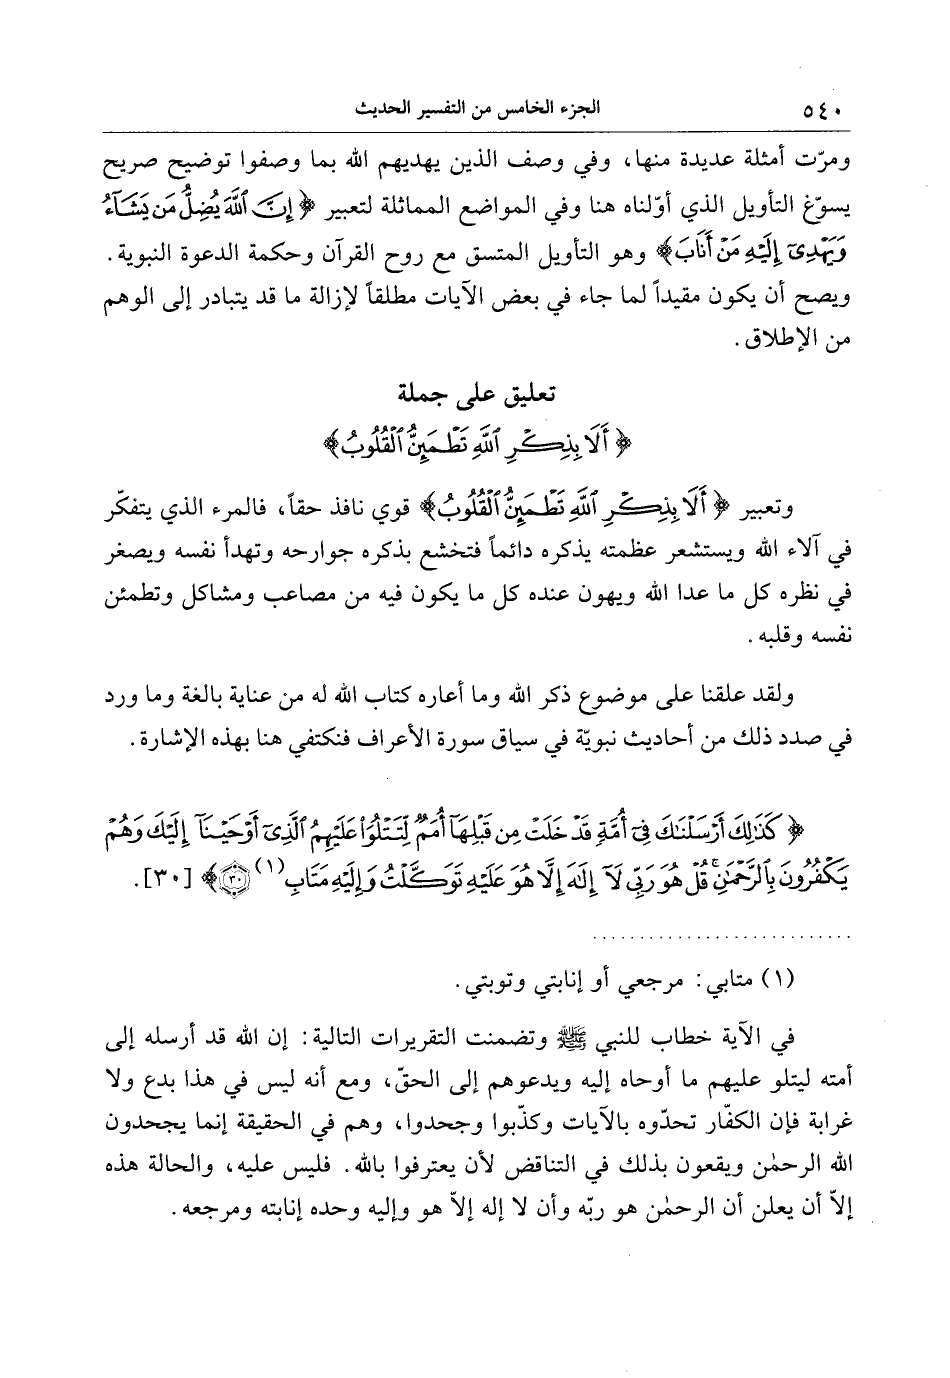 ٥٤٠ الجزء الخامس من التفسير الحديث
ومرّت أمثلة عديدة منها، وفي وصف الذين يهديهم الله بما وصفوا توضيح صريح
يسوّغ التأويل الذي أوّلناه هنا وفي المواضع المماثلة لتعبير ﴿إِنَّ ٱللَّهَ يُضِلُّ مَن يَشَآءُ
وَيَهْدِىٓ إِلَيْهِ مَنْ أَنَابَ﴾ وهو التأويل المتسق مع روح القرآن وحكمة الدعوة النبوية.
ويصح أن يكون مقيداً لما جاء في بعض الآيات مطلقاً لإزالة ما قد يتبادر إلى الوهم
من الإطلاق.
تعليق على جملة
﴿أَلَا بِذِكْرِ ٱللَّهِ تَطْمَئِنُّ ٱلْقُلُوبُ﴾
وتعبير ﴿أَلَا بِذِكْرِ ٱللَّهِ تَطْمَئِنُّ ٱلْقُلُوبُ﴾ قوي نافذ حقاً، فالمرء الذي يتفكّر
في آلاء الله ويستشعر عظمته يذكره دائماً فتخشع بذكره جوارحه وتهدأ نفسه ويصغر
في نظره كل ما عدا الله ويهون عنده كل ما يكون فيه من مصاعب ومشاكل وتطمئن
نفسه وقلبه.
ولقد علقنا على موضوع ذكر الله وما أعاره كتاب الله له من عناية بالغة وما ورد
في صدد ذلك من أحاديث نبويّة في سياق سورة الأعراف فنكتفي هنا بهذه الإشارة.
﴿كَذَٰلِكَ أَرْسَلْنَٰكَ فِىٓ أُمَّةٍ قَدْ خَلَتْ مِن قَبْلِهَآ أُمَمٌ لِّتَتْلُوَا۟ عَلَيْهِمُ ٱلَّذِىٓ أَوْحَيْنَآ إِلَيْكَ وَهُمْ
يَكْفُرُونَ بِٱلرَّحْمَٰنِ ۚ قُلْ هُوَ رَبِّى لَآ إِلَٰهَ إِلَّا هُوَ عَلَيْهِ تَوَكَّلْتُ وَإِلَيْهِ مَتَابِ (١) ۝٣٠﴾ [٣٠].
(١) متابي: مرجعي أو إنابتي وتوبتي.
في الآية خطاب للنبي ﷺ وتضمنت التقريرات التالية: إن الله قد أرسله إلى
أمته ليتلو عليهم ما أوحاه إليه ويدعوهم إلى الحقّ، ومع أنه ليس في هذا بدع ولا
غرابة فإن الكفّار تحدّوه بالآيات وكذّبوا وجحدوا، وهم في الحقيقة إنما يجحدون
الله الرحمٰن ويقعون بذلك في التناقض لأن يعترفوا بالله. فليس عليه، والحالة هذه
إلاّ أن يعلن أن الرحمٰن هو ربّه وأن لا إله إلاّ هو وإليه وحده إنابته ومرجعه.